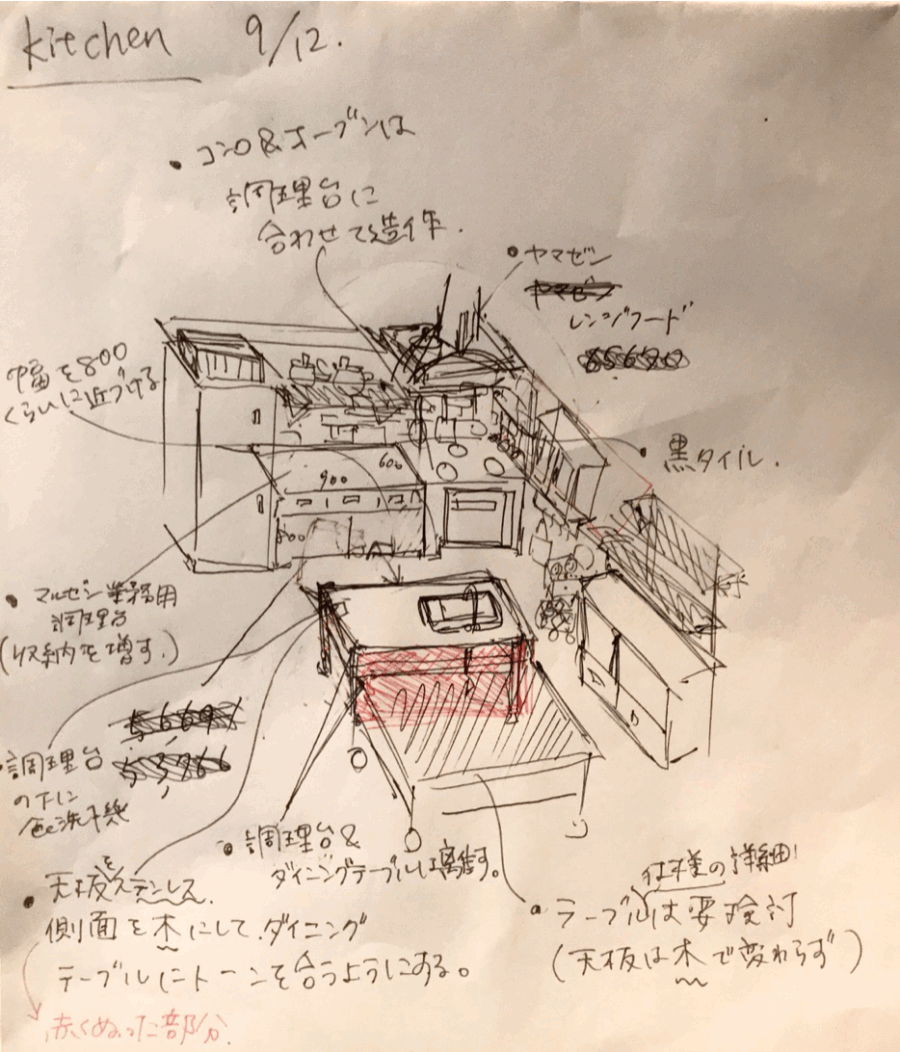 kitchen 9/12.
・コンロ&オーブンは
調理台に
合わせて造作.
・ヤマゼン
レンジフード
幅を800
くらいに近づける
・黒タイル.
600
900
・マルゼン業務用
調理台
(収納を増す.)
・調理台
の下に
食洗干機
・調理台&
ダイニングテーブルは離す。
・天板をステンレス.
側面を木にして.ダイニング
テーブルにトーンを合うようにする。
赤くぬった部分.
仕様の詳細!
・テーブルは要検討
(天板は木で変わらず)